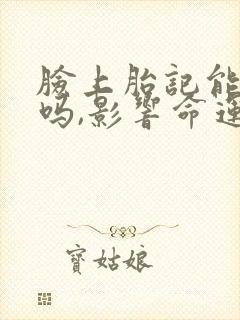 臉上胎記能
吗,影響命運
寶姑娘